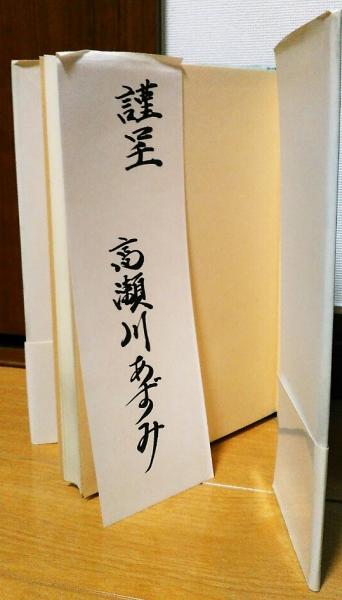 謹呈
高瀬川あずみ